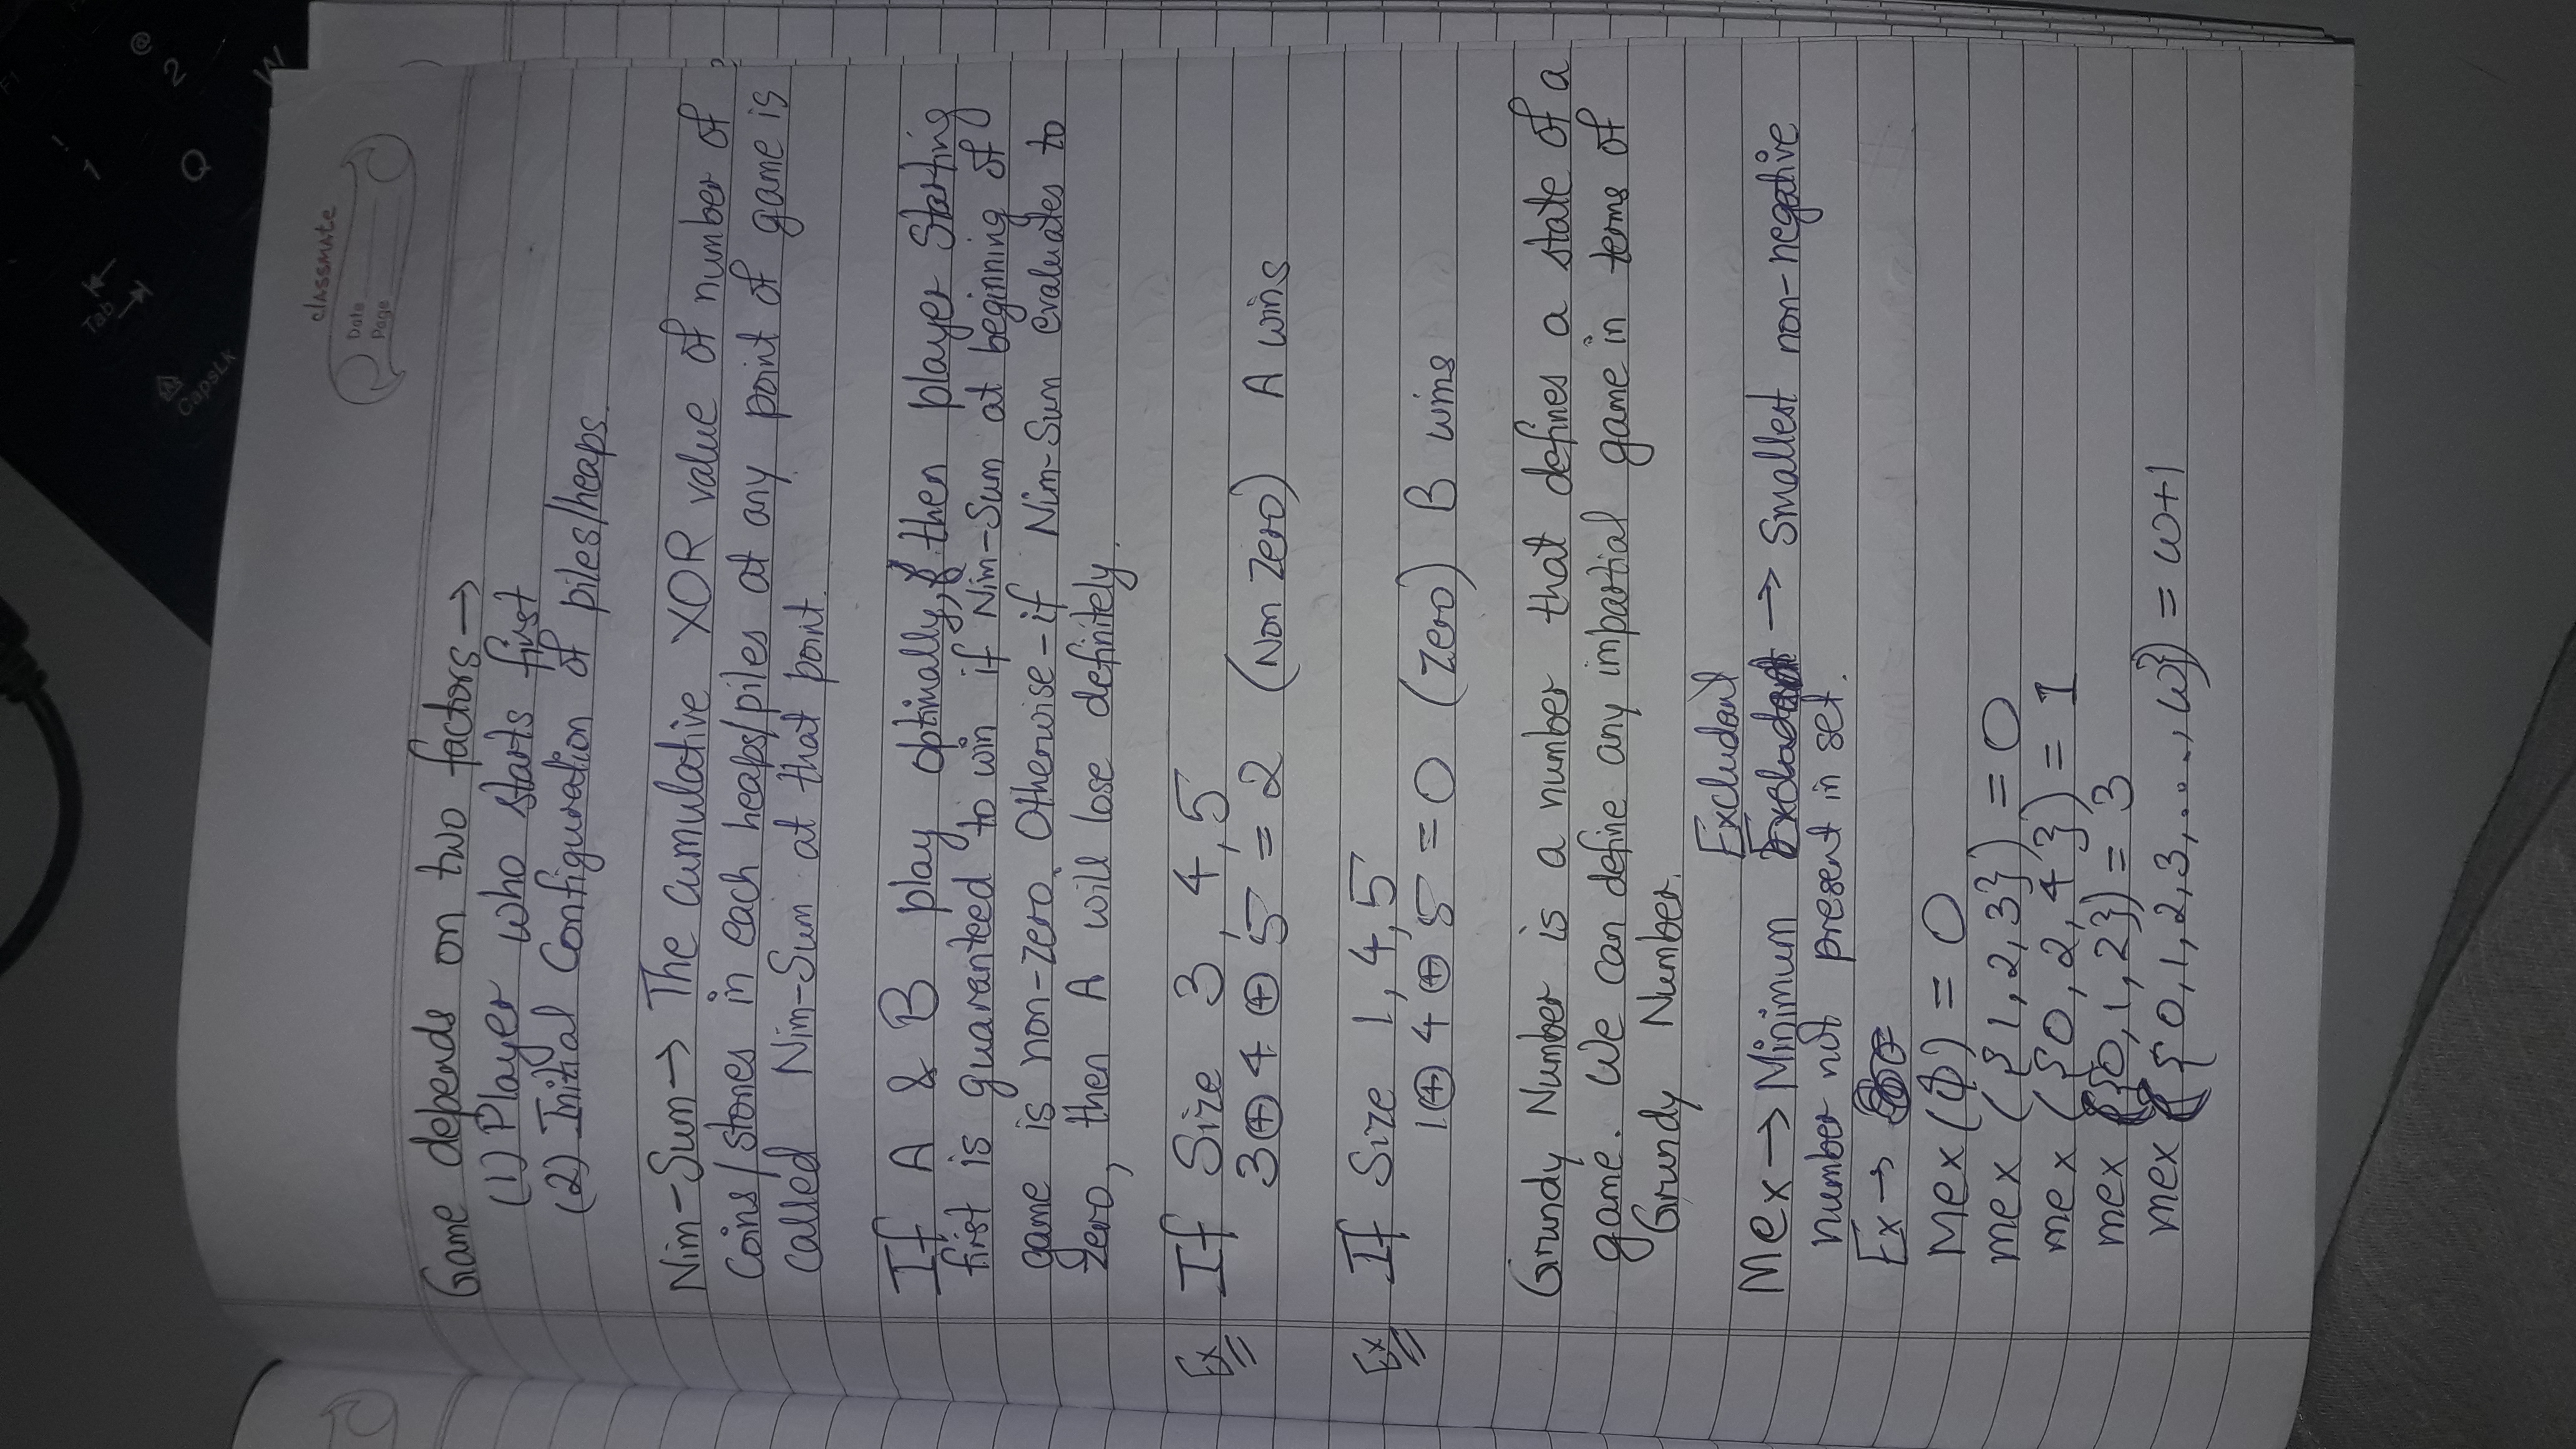 F1
!
1
Tab
@
2
Q
CapsLk
W
classmate
Date
Page
Game depends on two factors →
(1) Player who starts first
(2) Initial Configuration of piles/heaps.
Nim-Sum → The cumulative XOR value of number of
Coins/stones in each heaps/piles at any point of game is
called Nim-Sum at that point.
If A & B play optimally, then player starting
first is guaranteed to win if Nim-Sum at beginning of
game is non-zero. Otherwise - if Nim-Sum evaluates to
zero, then A will lose definitely.
Ex If Size 3, 4, 5
3 ⊕ 4 ⊕ 5 = 2 (Non Zero) A wins
Ex If Size 1, 4, 5
1 ⊕ 4 ⊕ 5 = 0 (Zero) B wins
Grundy Number is a number that defines a state of a
game. We can define any impartial game in terms of
Grundy Number.
Excludant
Mex → Minimum → Smallest non-negative
number not present in set.
Ex →
Mex (ϕ) = 0
mex ({1, 2, 3}) = 0
mex ({0, 2, 4}) = 1
mex ({0, 1, 2}) = 3
mex ({0, 1, 2, 3, ..., ω}) = ω+1